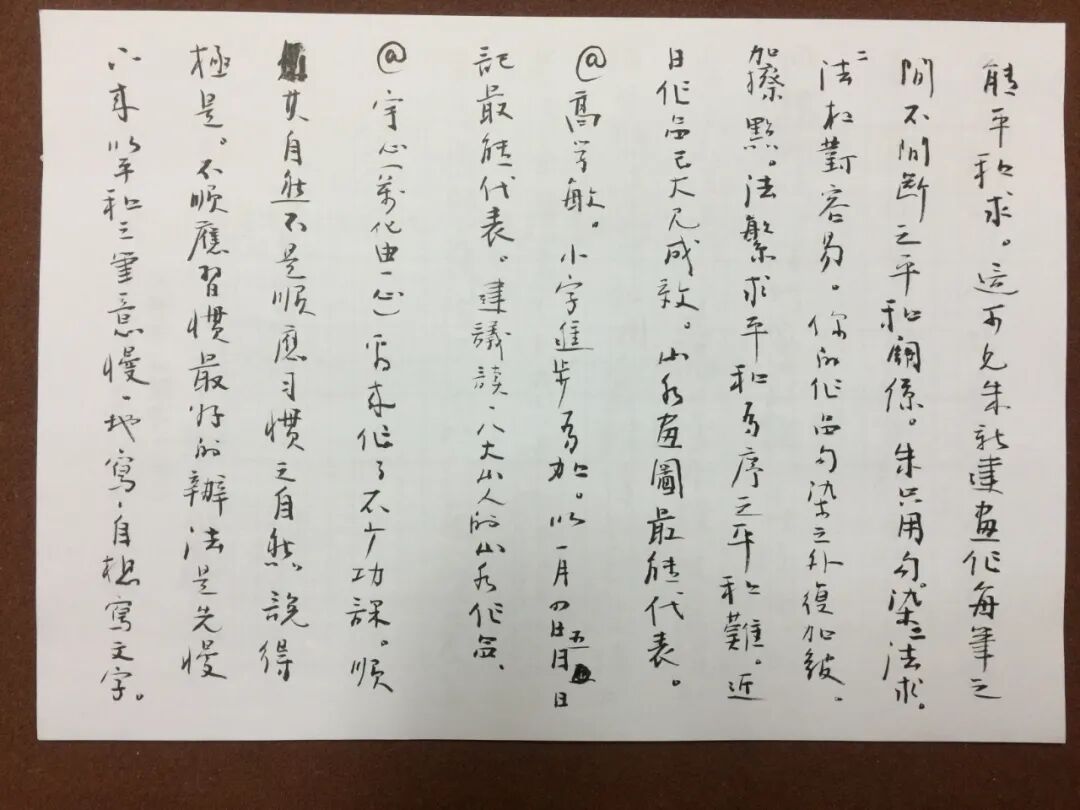 能平和求。這可見朱新建畫作每筆之
間不間斷之平和關係。朱只用勾。染二法求。
二法相對容易。你的作品勾染之外復加皴。
加擦點。法繁求平和為序之平和難。近
日作品已大見成效。山水畫圖最能代表。
@高学敏。小字進步為加。以一月四日五日日
記最能代表。建議讀八大山人的山水作品、
@守心(萬化由一心)看來作了不少功課。順
其自然不是順應习慣之自然。說得
極是。不順應習慣最好的辦法是先慢
下來以平和之筆意慢慢地寫自想寫文字。